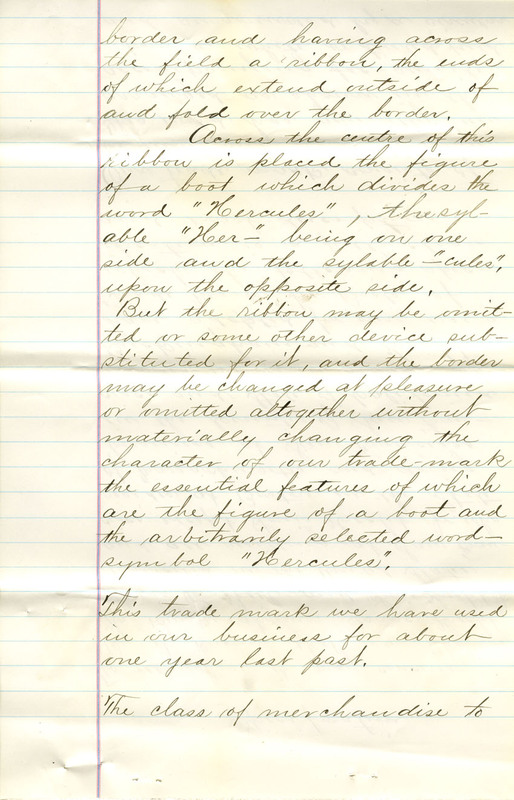 border and having across
the field a ribbon, the ends
of which extend outside of
and fold over the border.
Across the centre of this
ribbon is placed the figure
of a boot which divides the
word "Hercules", the syl-
able "Her-" being on one
side and the sylable "-cules",
upon the opposite side.
But the ribbon may be omit-
ted or some other device sub-
stituted for it, and the border
may be changed at pleasure
or omitted altogether without
materially changing the
character of our trade-mark
the essential features of which
are the figure of a boot and
the arbitrarily selected word-
symbol "Hercules".
This trade mark we have used
in our business for about
one year last past.
The class of merchandise to